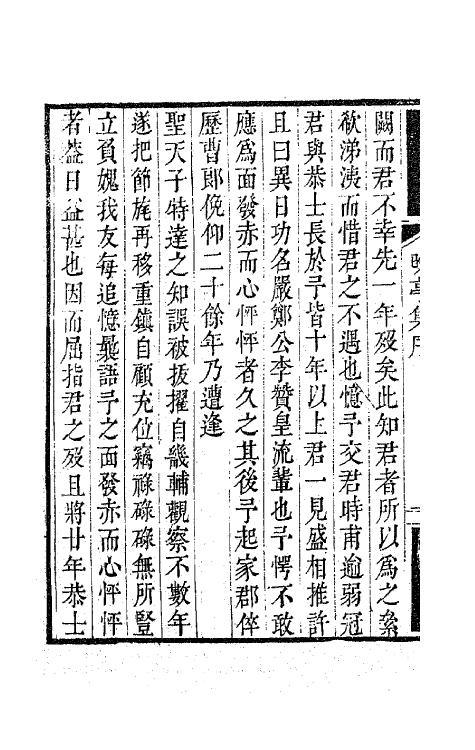 闕而君不幸先一年歿矣此知君者所以爲之絫
欷涕洟而惜君之不遇也憶予交君時甫逾弱冠
君與恭士長於予皆十年以上君一見盛相推許
且曰異日功名嚴鄭公李贊皇流輩也予愕不敢
應爲面發赤而心怦怦者久之其後予起家郡倅
歷曹郎俛仰二十餘年乃遭逢
聖天子特達之知誤被拔擢自畿輔觀察不數年
遂把節旄再移重鎮自顧充位竊祿碌碌無所豎
立負媿我友每追憶曩語予之面發赤而心怦怦
者葢日益甚也因而屈指君之歿且將廿年恭士